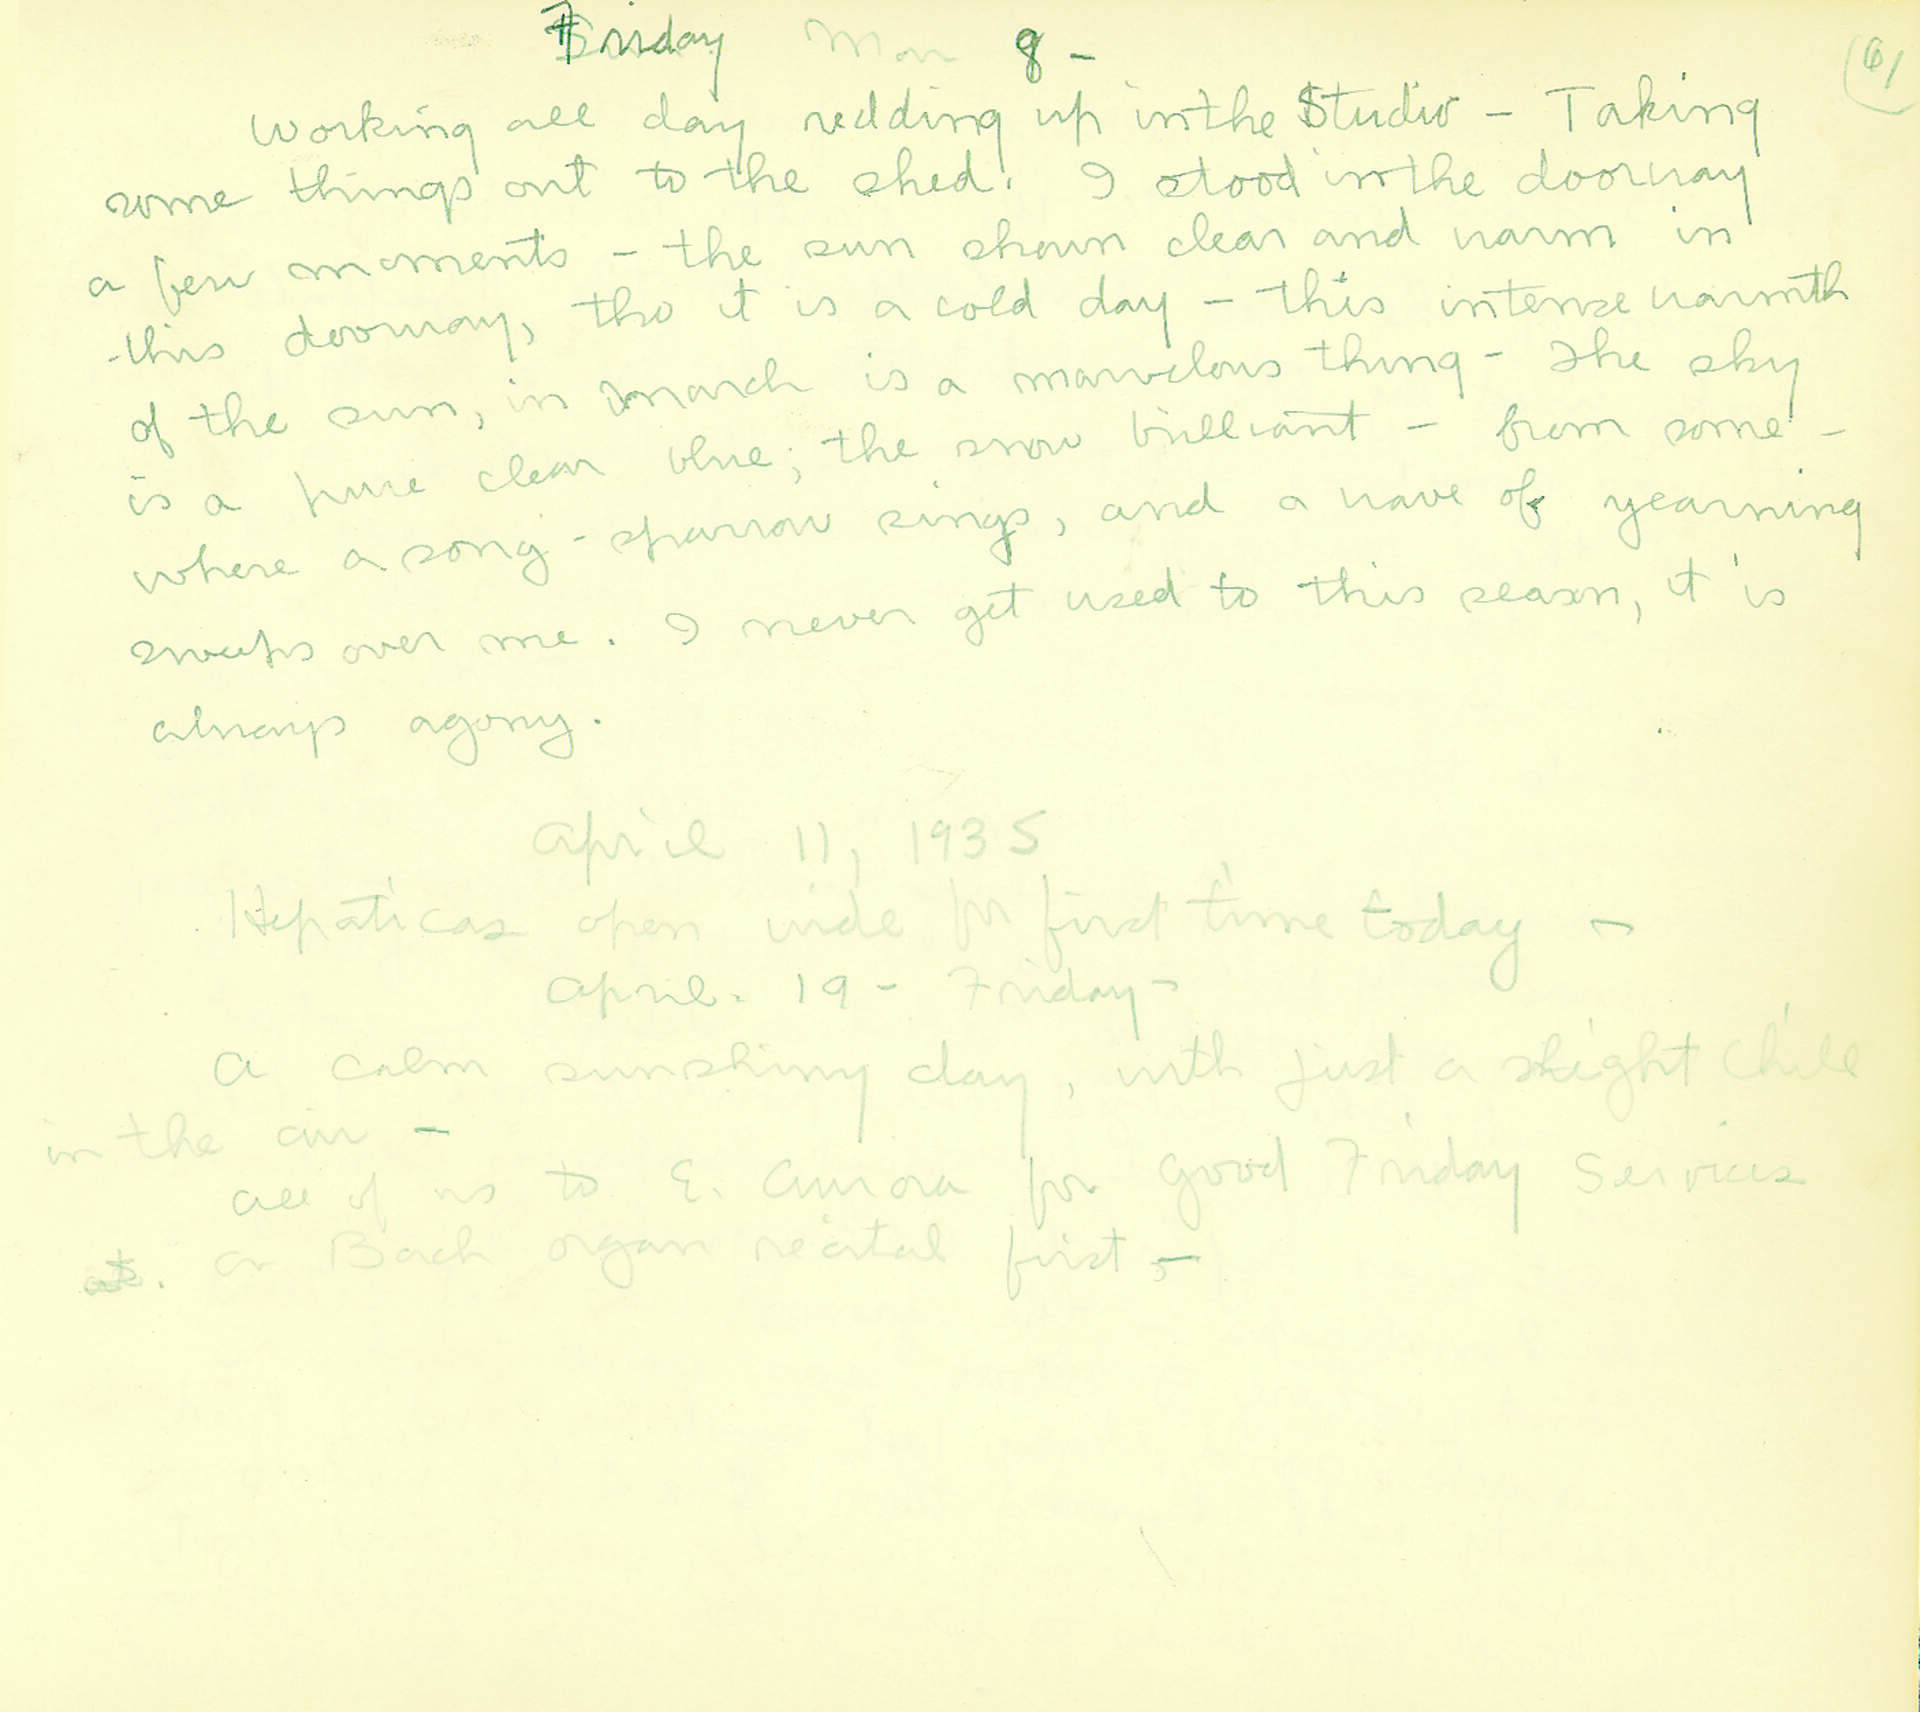 Friday Mar 8 –
61
Working all day redding up in the Studio – Taking
some things out to the shed. I stood in the doorway
a few moments – the sun shown clear and warm in
this doorway, tho it is a cold day – this intense warmth
of the sun, in March is a marvelous thing – The sky
is a pure clear blue; the snow brilliant – from some-
where a song-sparrow sings, and a wave of yearning
sweeps over me. I never get used to this season, it is
always agony.
April 11, 1935
Hepaticas open wide for first time today –
April. 19 – Friday –
A calm sunshiny day, with just a slight chill
in the air –
All of us to E. Aurora for Good Friday Services
a Bach organ recital first, –